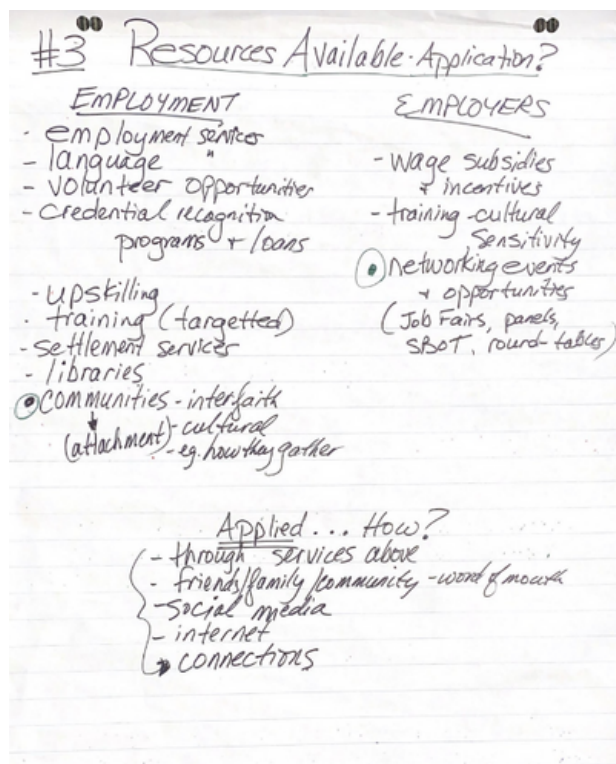 #3 Resources Available - Application?
EMPLOYMENT
- employment services
- language "
- volunteer opportunities
- credential recognition
programs + loans
- upskilling
- training (targetted)
- settlement services
- libraries
• communities - interfaith
(attachment) - cultural
- eg. how they gather
EMPLOYERS
- wage subsidies
+ incentives
- training - cultural
sensitivity
• networking events
+ opportunities
(Job Fairs, panels,
SBOT, round-tables)
Applied ... How?
- through services above
- friends/family/community - word of mouth
- social media
- internet
- connections